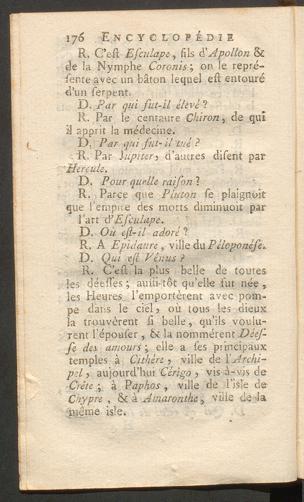 176 ENCYCLOPÉDIE
R. C'est Esculape, fils d'Apollon &
de la Nymphe Coronis; on le repré-
sente avec un bâton lequel est entouré
d'un serpent.
D. Par qui fut-il élevé?
R. Par le centaure Chiron, de qui
il apprit la médecine.
D. Par qui fut-il tué?
R. Par Jupiter, d'autres disent par
Hercule.
D. Pour quelle raison?
R. Parce que Pluton se plaignoit
que l'empire des morts diminuoit par
l'art d'Esculape.
D. Où est-il adoré?
R. A Epidaure, ville du Péloponése.
D. Qui est Vénus?
R. C'est la plus belle de toutes
les déesses; aussi-tôt qu'elle fut née,
les Heures l'emportèrent avec pom-
pe dans le ciel, où tous les dieux
la trouvèrent si belle, qu'ils voulu-
rent l'épouser, & la nommèrent Dées-
se des amours; elle a ses principaux
temples à Cithère, ville de l'Archi-
pel, aujourd'hui Cérigo, vis-à-vis de
Crète; à Paphos, ville de l'isle de
Chypre, & à Amaronthe, ville de la
même isle.